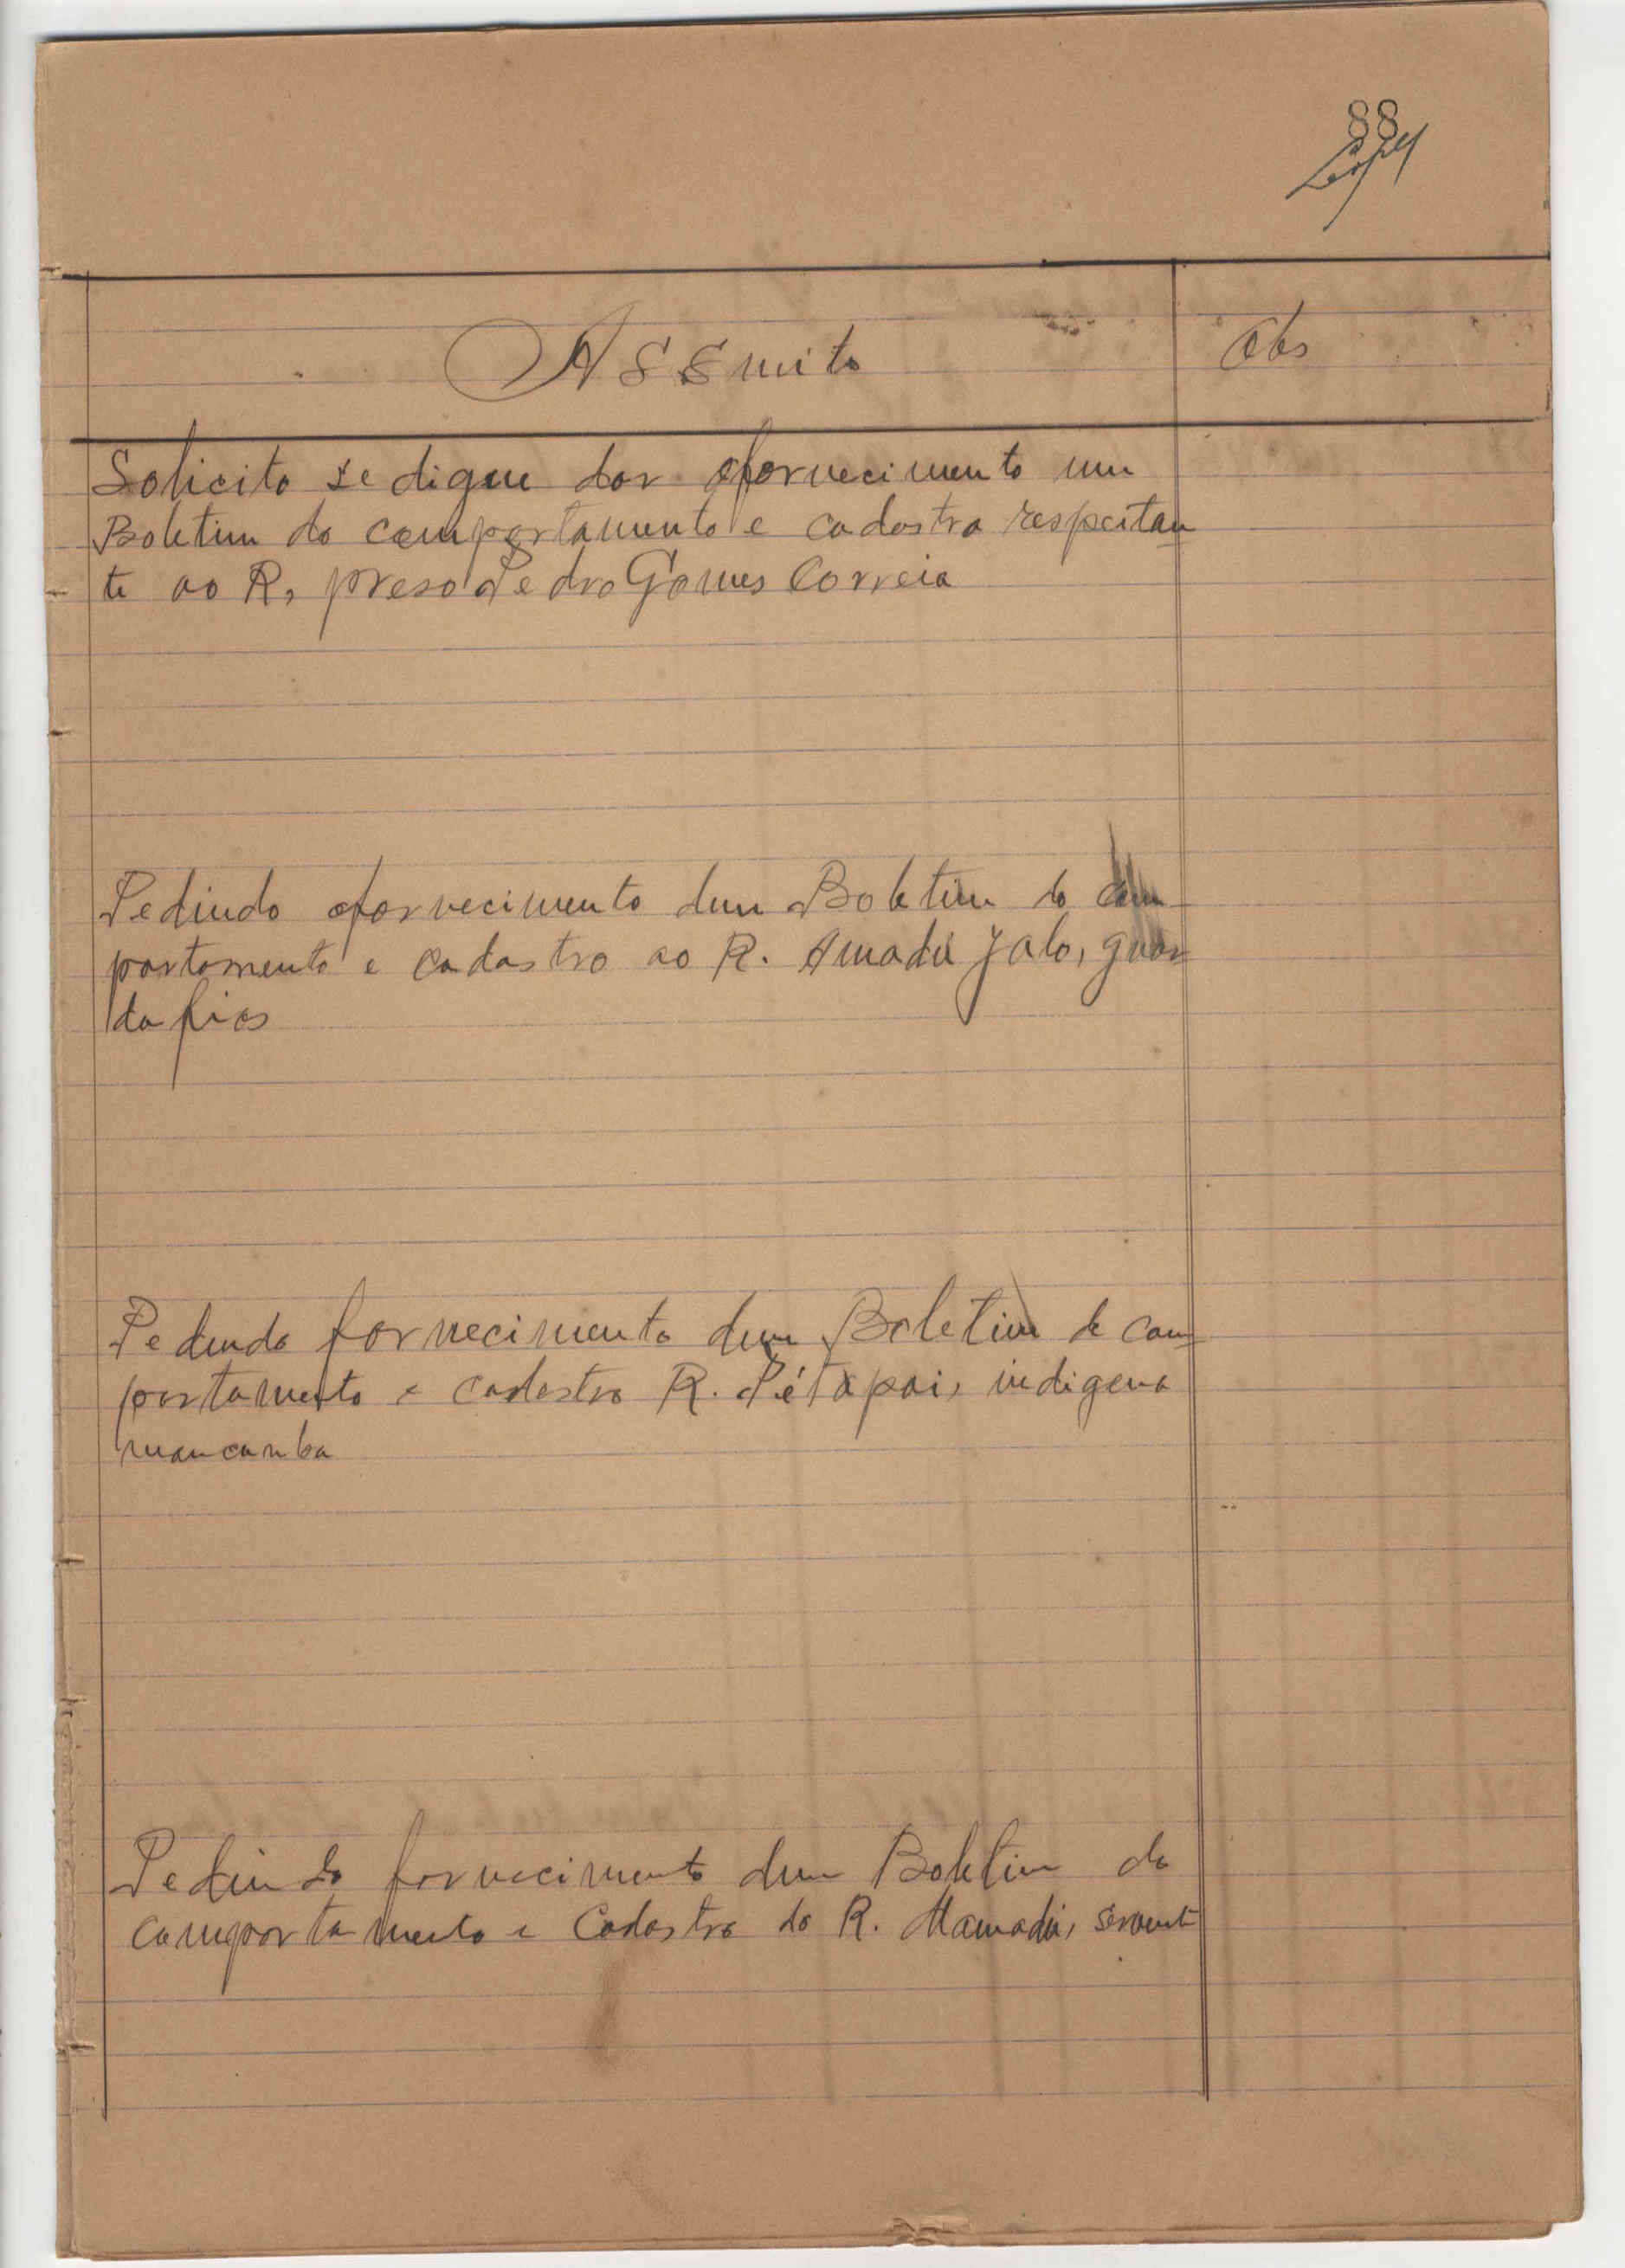 88
Lopes
Assunto
Obs
Solicito se digne dar ofornecimento um
Boletim do comportamento e cadastro respeitan
te ao R, preso Pedro Gomes Correia
Pedindo ofornecimento dum Boletim do com
portamento e cadastro ao R. Amadú Jalo, guar
da fios
Pedindo fornecimento dum Boletim de com
portamento e cadastro R. indigena
mancanba
Pedindo fornecimento dum Boletim do
comportamento e Cadastro do R. Mamadú, servent